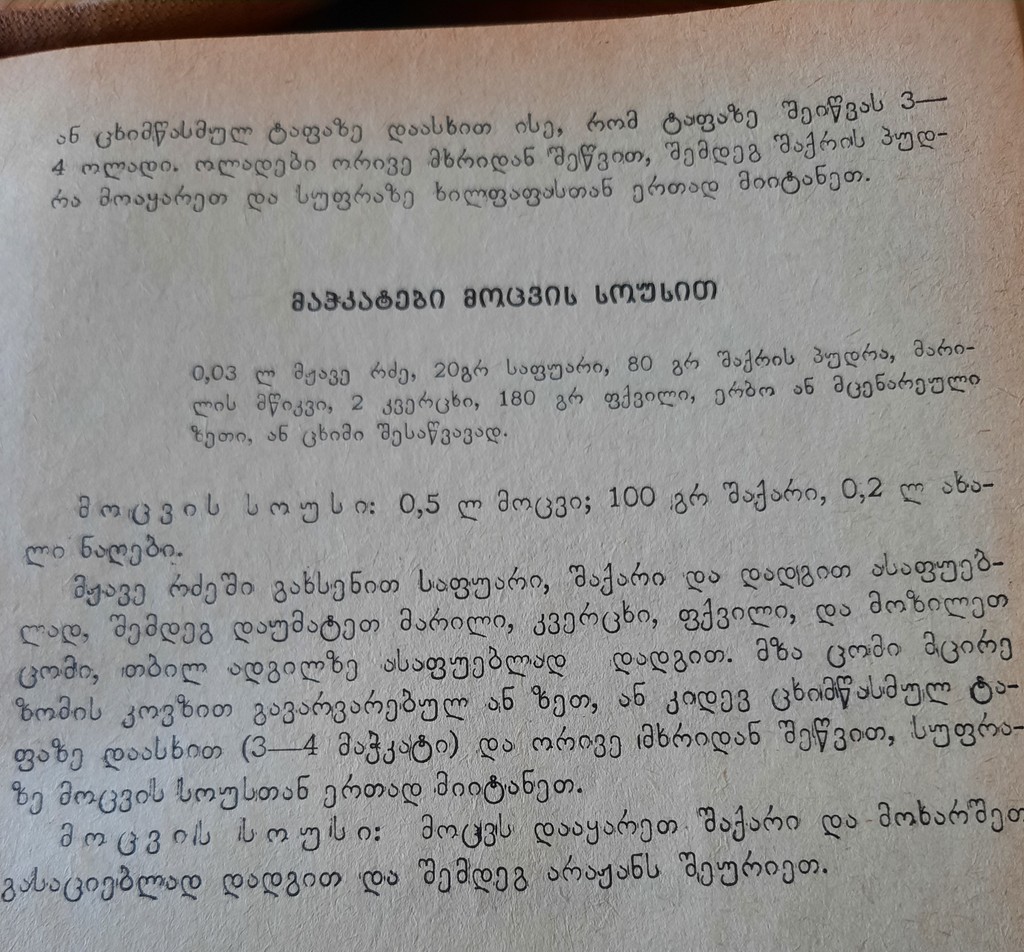 ან ცხიმწასმულ ტაფაზე დაასხით ისე, რომ ტაფაზე შეიწვას 3—
4 ოლადი. ოლადები ორივე მხრიდან შეწვით, შემდეგ შაქრის პუდ-
რა მოაყარეთ და სუფრაზე ხილფაფასთან ერთად მიიტანეთ.
მაჭკატები მოცვის სოუსით
0,03 ლ მჟავე რძე, 20გრ საფუარი, 80 გრ შაქრის პუდრა, მარი-
ლის მწიკვი, 2 კვერცხი, 180 გრ ფქვილი, ერბო ან მცენარეული
ზეთი, ან ცხიმი შესაწვავად.
მოცვის სოუსი: 0,5 ლ მოცვი; 100 გრ შაქარი, 0,2 ლ ახა-
ლი ნაღები.
მჟავე რძეში გახსენით საფუარი, შაქარი და დადგით ასაფუებ-
ლად, შემდეგ დაუმატეთ მარილი, კვერცხი, ფქვილი, და მოზილეთ
ცომი, თბილ ადგილზე ასაფუებლად დადგით. მზა ცომი მცირე
ზომის კოვზით გავარვარებულ ან ზეთ, ან კიდევ ცხიმწასმულ ტა-
ფაზე დაასხით (3—4 მაჭკატი) და ორივე მხრიდან შეწვით, სუფრა-
ზე მოცვის სოუსთან ერთად მიიტანეთ.
მოცვის სოუსი: მოცვს დააყარეთ შაქარი და მოხარშეთ
გასაციებლად დადგით და შემდეგ არაჟანს შეურიეთ.